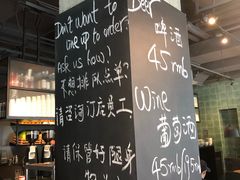 Don't want to
line up to order?
Ask us how!
不想排队点单?
请咨询门店员工
请保管好随身
Beer
啤酒
45 rmb
Wine
葡萄酒
45rmb/95rmb